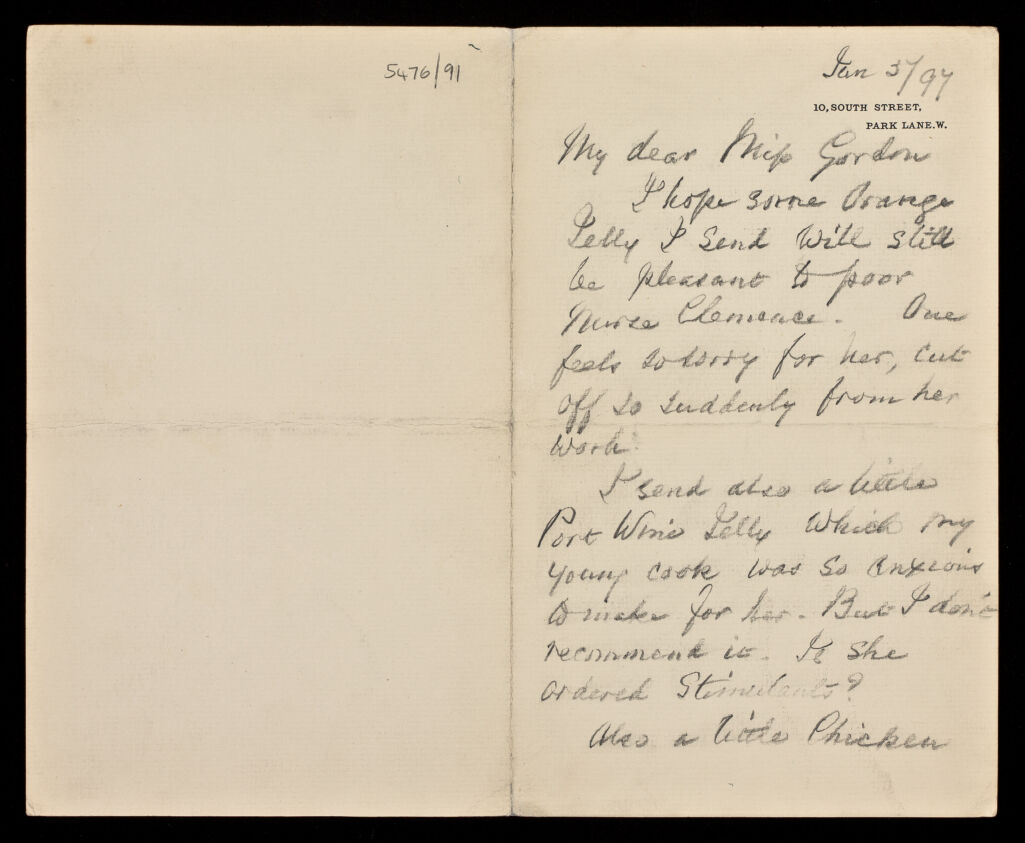 5476/91
Jan 5/97
10, SOUTH STREET,
PARK LANE. W.
My dear Miss Gordon
I hope some Orange
Jelly I send will still
be pleasant to poor
Nurse Clemence. One
feels so sorry for her, cut
off so suddenly from her
work.
I send also a little
Port Wine Jelly which my
young cook was so anxious
to make for her. But I don't
recommend it. Is she
ordered Stimulants?
Also a little Chicken